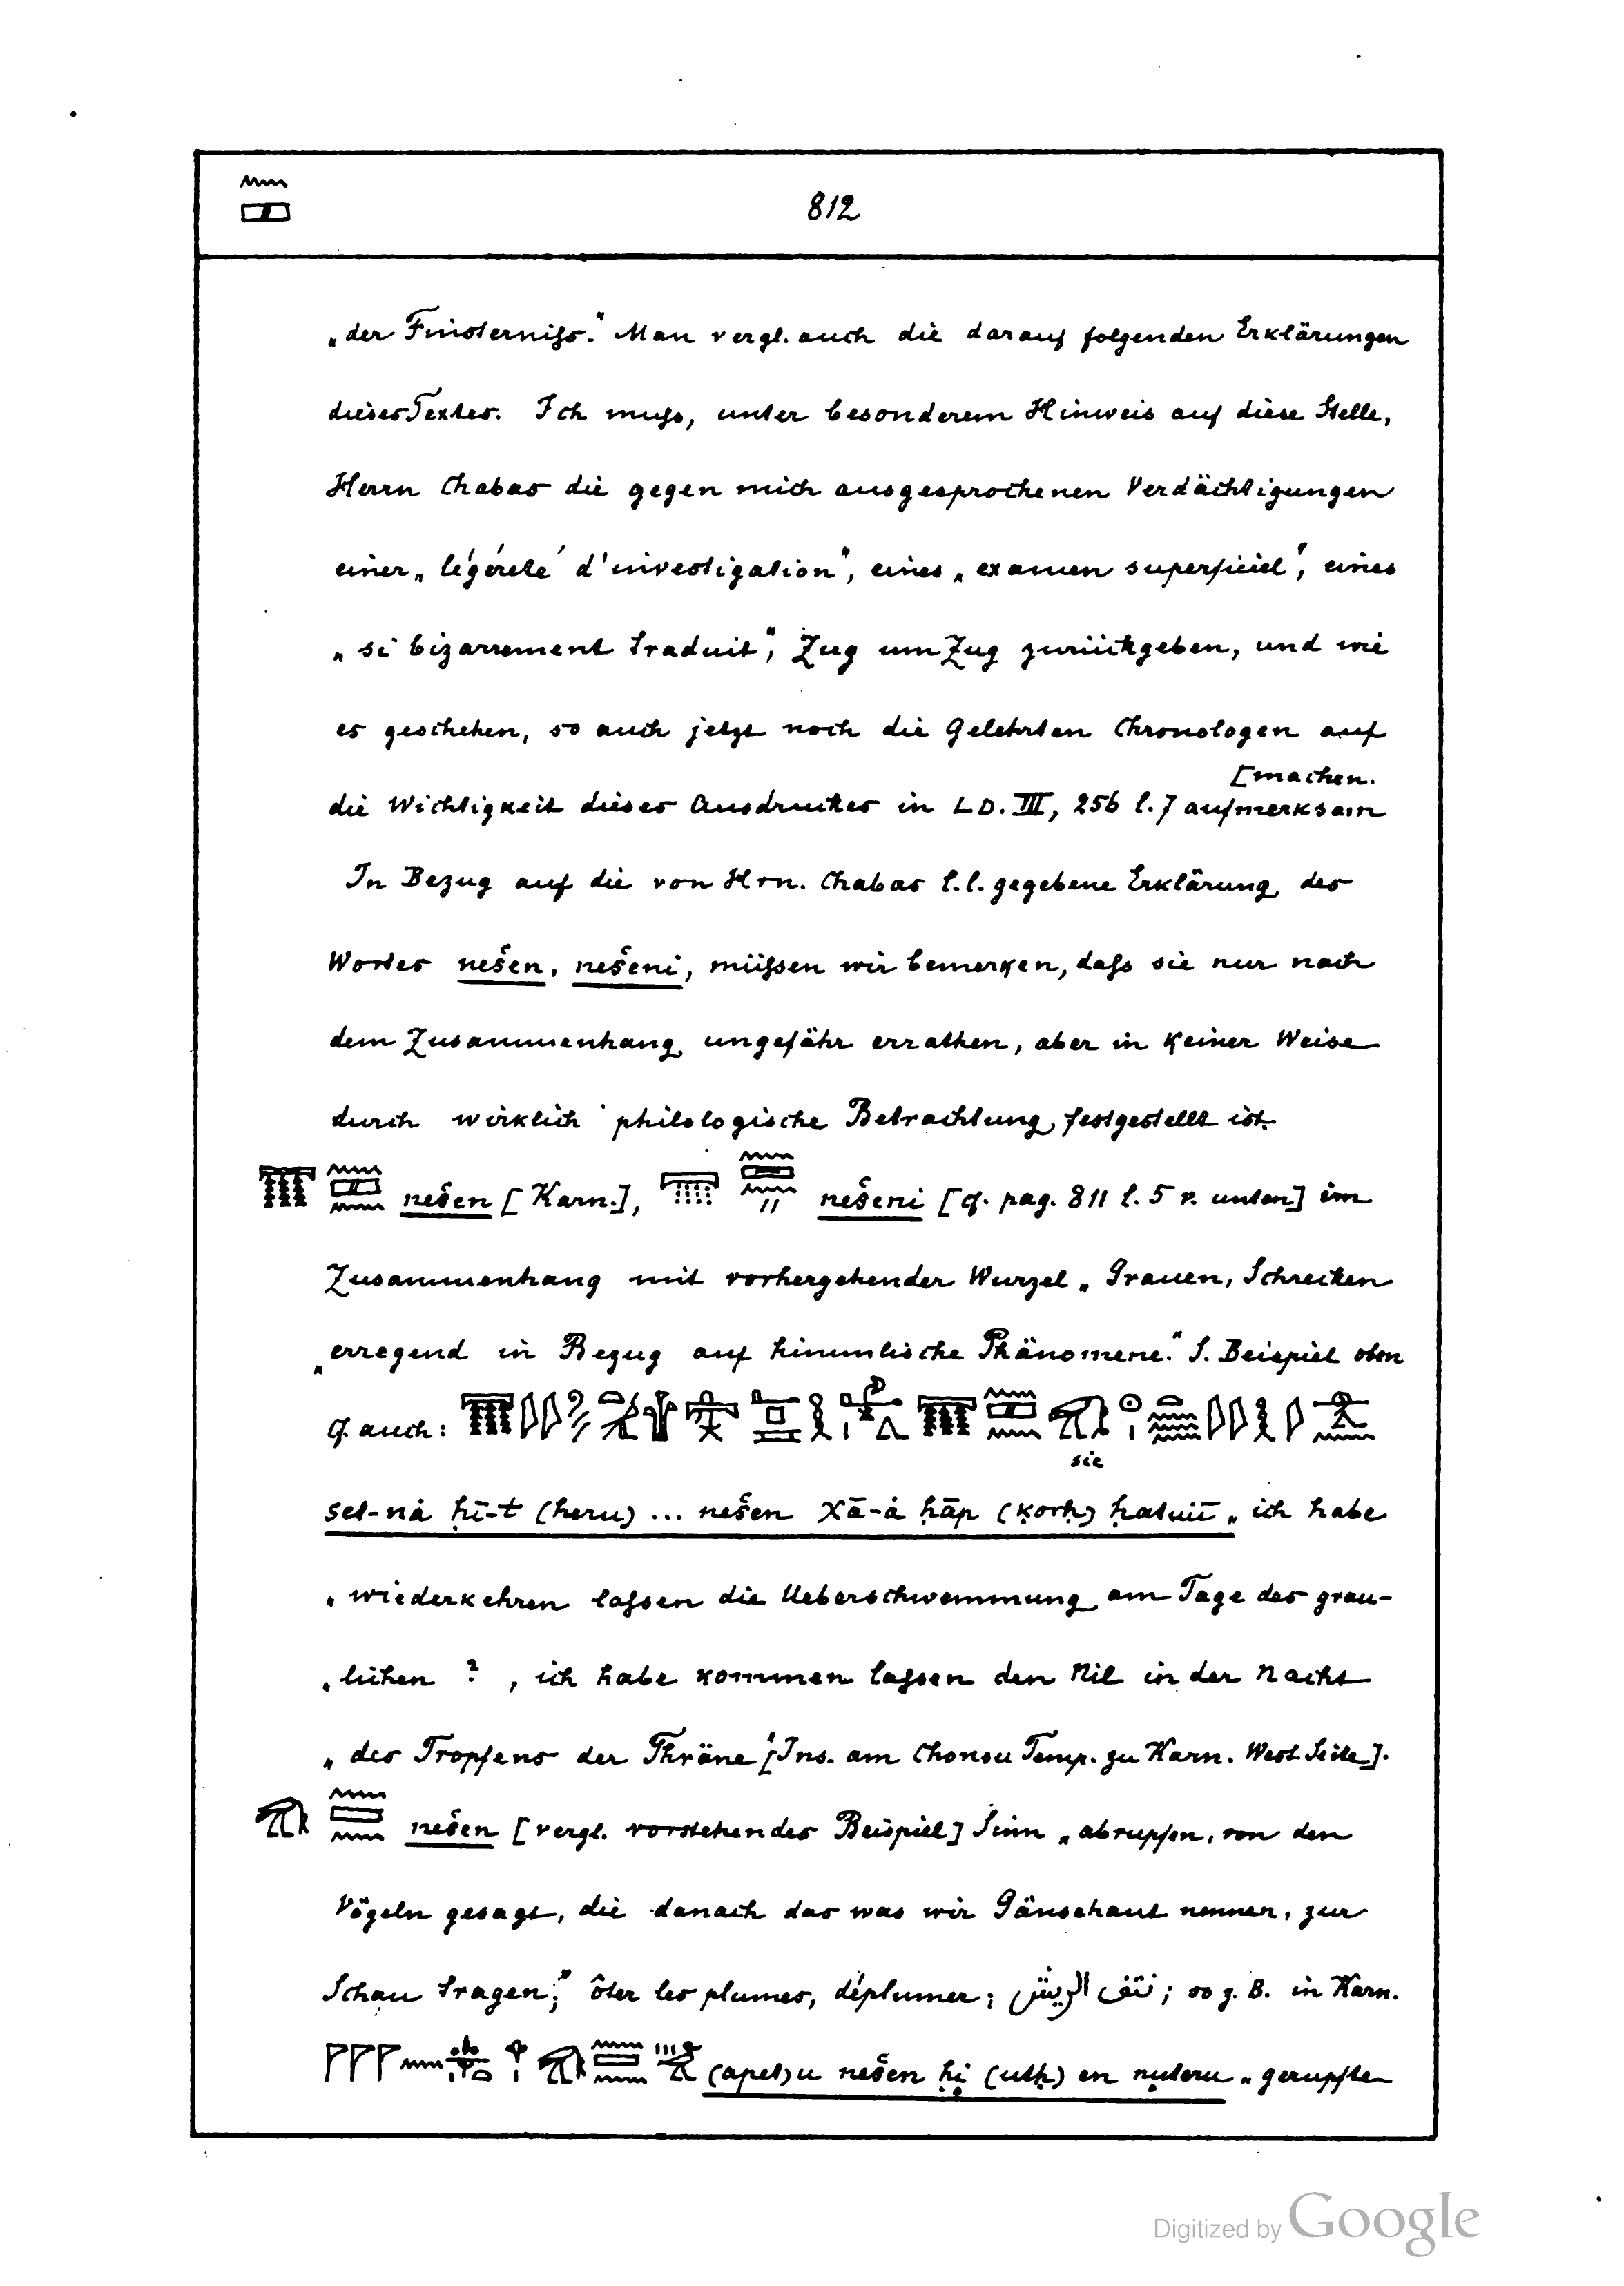 812
„der Finsterniſs.“ Man vergl. auch die darauf folgenden Erklärungen
dieses Textes. Ich muſs, unter besonderem Hinweis auf diese Stelle,
Herrn Chabas die gegen mich ausgesprochenen Verdächtigungen
einer „légéreté d'investigation“, eines „examen superficiel“, eines
„si bizarrement traduit“, Zug um Zug zurückgeben, und wie
es geschehen, so auch jetzt noch die Gelehrten Chronologen auf
[machen.
die Wichtigkeit dieses Ausdruckes in LD. III, 256 l. 7 aufmerksam
In Bezug auf die von Hrn. Chabas l.l. gegebene Erklärung des
Wortes nešen, nešeni, müſsen wir bemerken, daſs sie nur nach
dem Zusammenhang ungefähr errathen, aber in keiner Weise
durch wirklich philologische Betrachtung festgestellt ist.
nešen [Karn.], nešeni [cf. pag. 811 l. 5 v. unten] im
Zusammenhang mit vorhergehender Wurzel „Grauen, Schrecken
„erregend in Bezug auf himmlische Phänomene.“ S. Beispiel oben
cf. auch:
sic
set-nȧ ḥī-t (heru) ... nešen χā-ȧ ḥāp (ḳorḥ) ḥatuiī „ich habe
„wiederkehren laſsen die Ueberschwemmung am Tage des grau-
„lichen ?, ich habe kommen laſsen den Nil in der Nacht
„des Tropfens der Thräne“ [Ins. am Chonsu Temp. zu Karn. West Seite].
nešen [vergl. vorstehendes Beispiel] Sinn „abrupfen, von den
Vögeln gesagt, die danach das was wir Gänsehaut nennen, zur
Schau tragen;“ ôter les plumes, déplumer; نتف الريش; so z. B. in Karn.
(apet)u nešen ḥi (utḥ) en nuteru „gerupfte
Digitized by Google